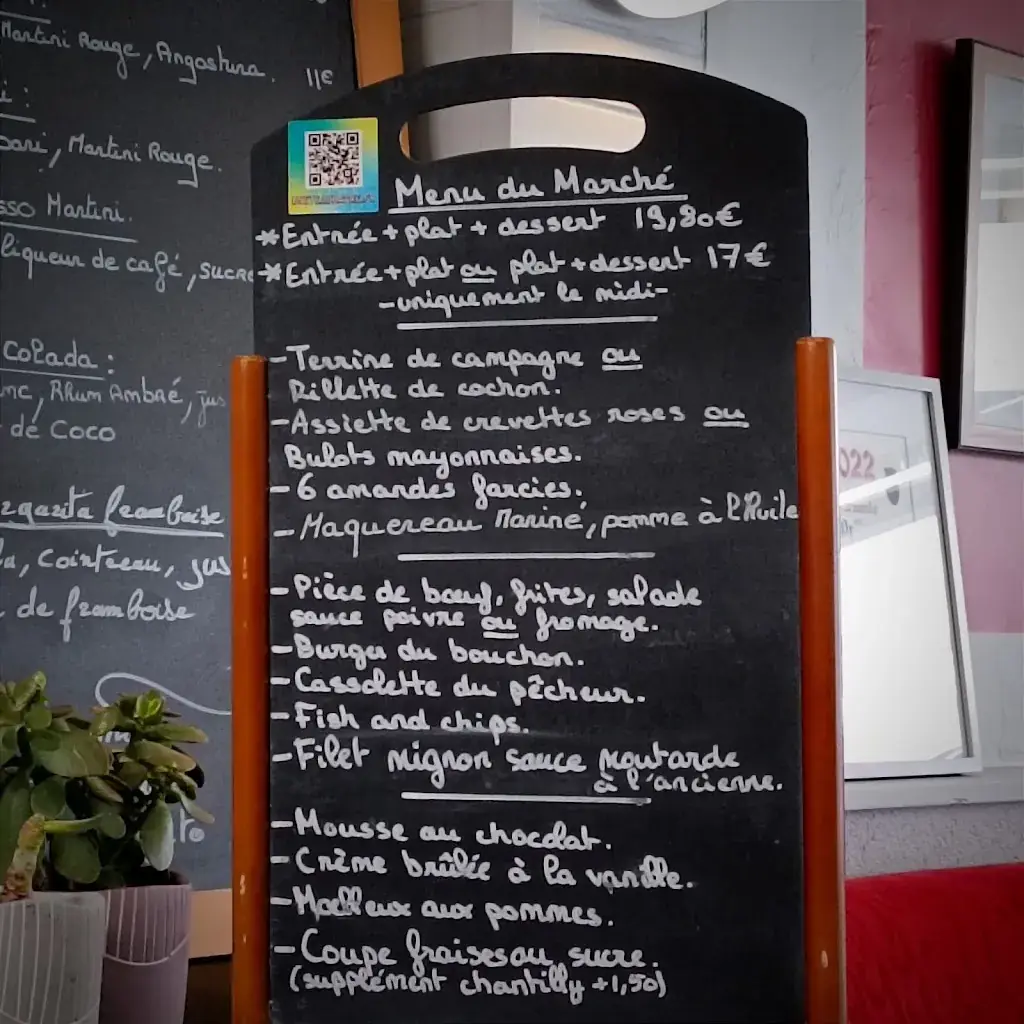 Martini Rouge, Angostura. 11€
Martini Rouge.
Martini.
liqueur de café, sucre
Colada :
Rhum Ambré, jus
de Coco
framboise
Cointreau, jus
de framboise
Menu du Marché
*Entrée + plat + dessert 19,80€
*Entrée + plat ou plat + dessert 17€
-uniquement le midi-
-Terrine de campagne ou
Rillette de cochon.
-Assiette de crevettes roses ou
Bulots mayonnaises.
-6 amandes farcies.
-Maquereau Mariné, pomme à l'Huile
-Pièce de bœuf, frites, salade
sauce poivre ou fromage.
-Burger du bouchon.
-Cassolette du pêcheur.
-Fish and chips.
-Filet mignon sauce moutarde
à l'ancienne.
-Mousse au chocolat.
-Crème brûlée à la vanille.
-Moelleux aux pommes.
-Coupe fraises au sucre.
(supplément chantilly +1,50)
2022